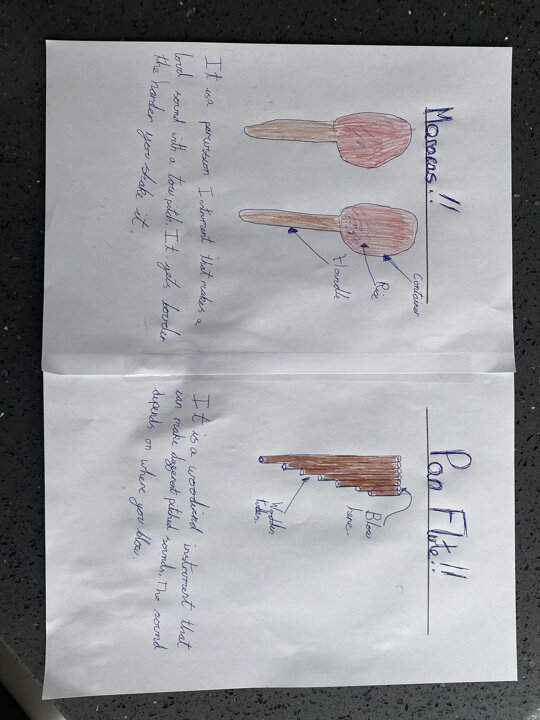 Maracas!!
Container
Rice
Handle
It is a percission Instrument that makes a
loud sound with a low pitch. It gets louder
the harder you shake it.
Pan Flute!!
Blow
here.
Wooden
tubes.
It is a woodwind instrument that
can make different pitched sounds. The sound
depends on where you blow.